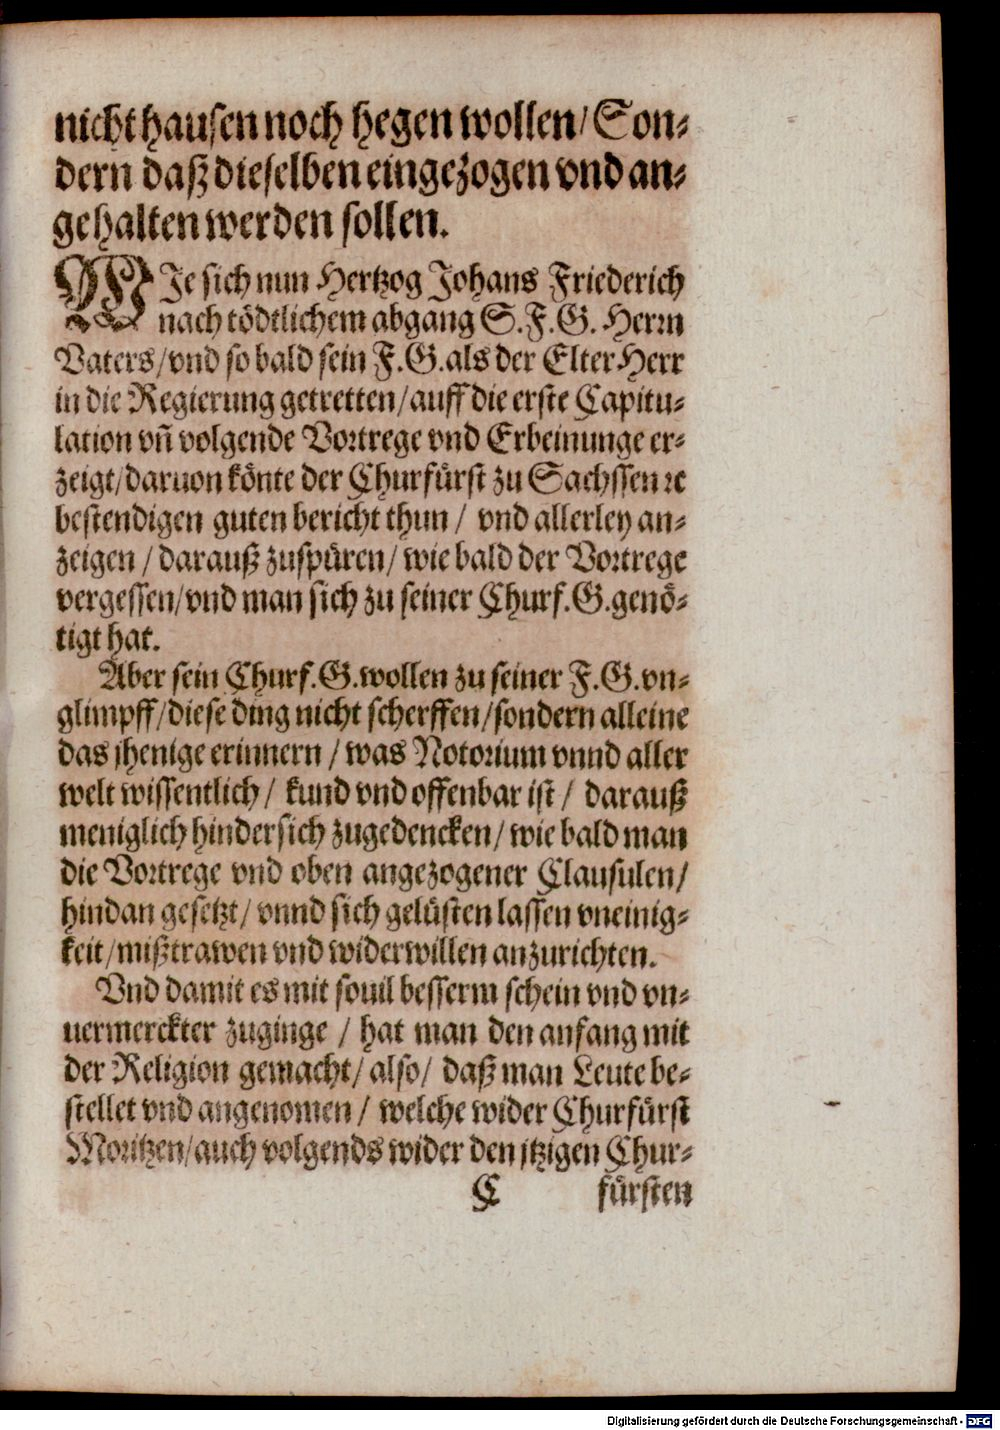 nicht hausen noch hegen wollen/ Son-
dern daß dieselben eingezogen vnd an-
gehalten werden sollen.
WJe sich nun Hertzog Johans Friederich
nach tödtlichem abgang S.F.G. Herrn
Vaters/ vnd so bald sein F.G. als der Elter Herr
in die Regierung getretten/ auff die erste Capitu-
lation vn̄ volgende Vortrege vnd Erbeinunge er-
zeigt/ daruon könte der Churfürst zu Sachssen ꝛc
bestendigen guten bericht thun / vnd allerley an-
zeigen / darauß zuspüren/ wie bald der Vortrege
vergessen/ vnd man sich zu seiner Churf.G. genö-
tigt hat.
Aber sein Churf.G. wollen zu seiner F.G. vn-
glimpff/ diese ding nicht scherffen/ sondern alleine
das jhenige erinnern / was Notorium vnnd aller
welt wissentlich/ kund vnd offenbar ist / darauß
meniglich hindersich zugedencken/ wie bald man
die Vortrege vnd oben angezogener Clausulen/
hindan gesetzt/ vnnd sich gelüsten lassen vneinig-
keit/ mißtrawen vnd widerwillen anzurichten.
Vnd damit es mit souil besserm schein vnd vn-
uermerckter zuginge / hat man den anfang mit
der Religion gemacht/ also/ daß man Leute be-
stellet vnd angenomen / welche wider Churfürst
Moritzen/ auch volgends wider den jtzigen Chur-
C fürsten
Digitalisierung gefördert durch die Deutsche Forschungsgemeinschaft - DFG